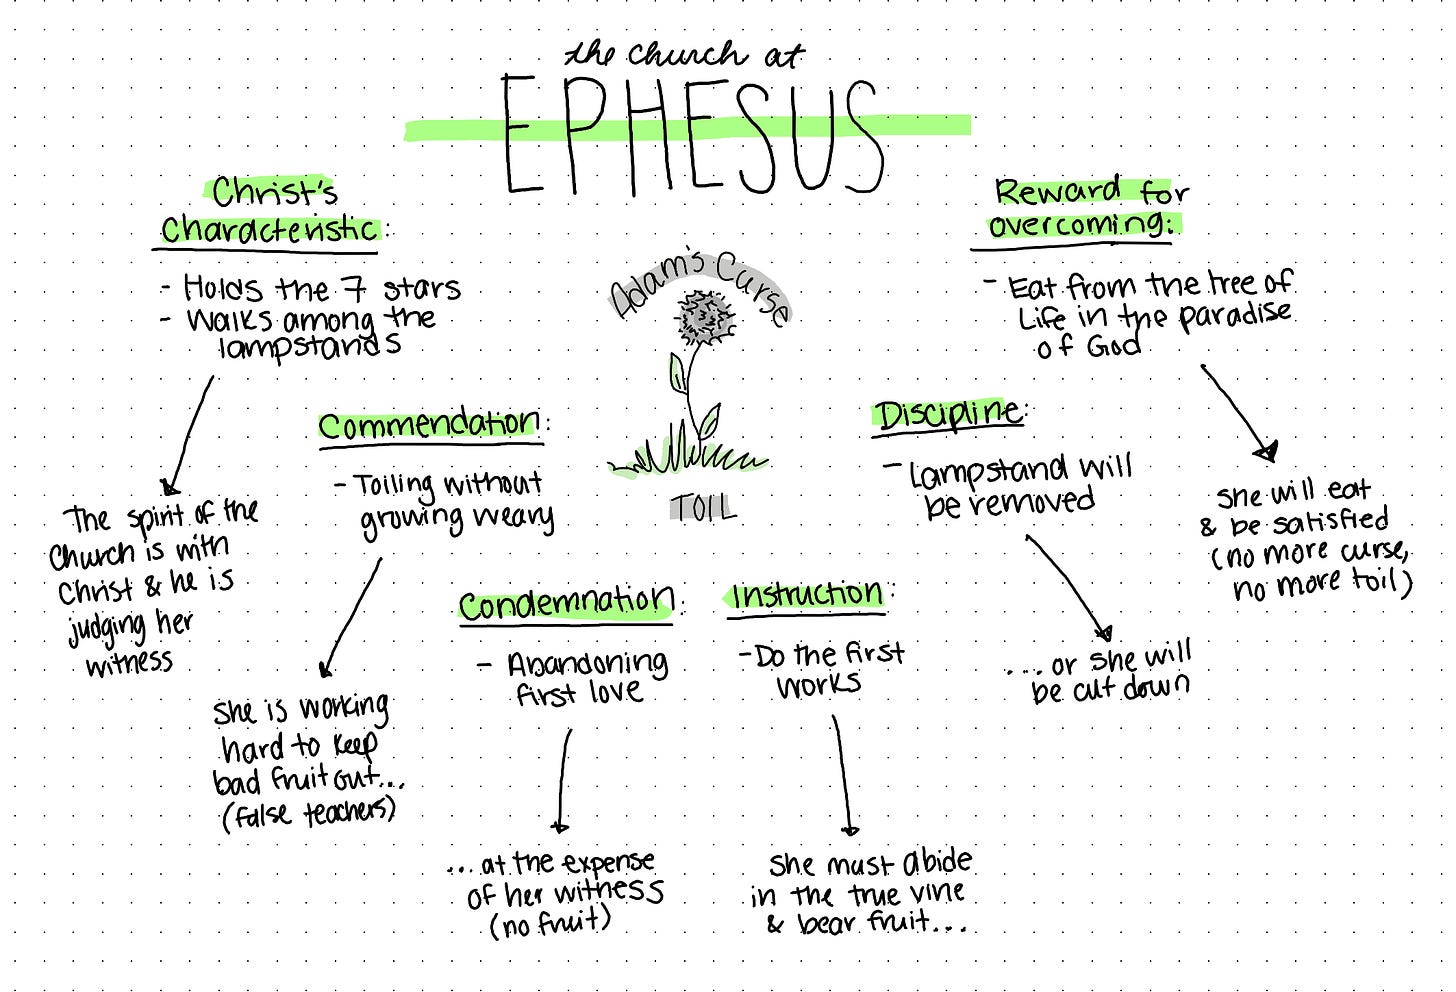 the church at
EPHESUS
Christ's
Characteristic:
- Holds the 7 stars
- Walks among the
lampstands
The spirit of the
Church is with
Christ & he is
judging her
witness
Commendation:
- Toiling without
growing weary
She is working
hard to keep
bad fruit out...
(false teachers)
Adam's Curse
TOIL
Condemnation:
- Abandoning
first love
...at the expense
of her witness
(no fruit)
Instruction:
- Do the first
works
She must abide
in the true vine
& bear fruit...
Discipline:
- Lampstand will
be removed
...or she will
be cut down
Reward for
overcoming:
- Eat from the tree of
Life in the paradise
of God
She will eat
& be satisfied
(no more curse,
no more toil)